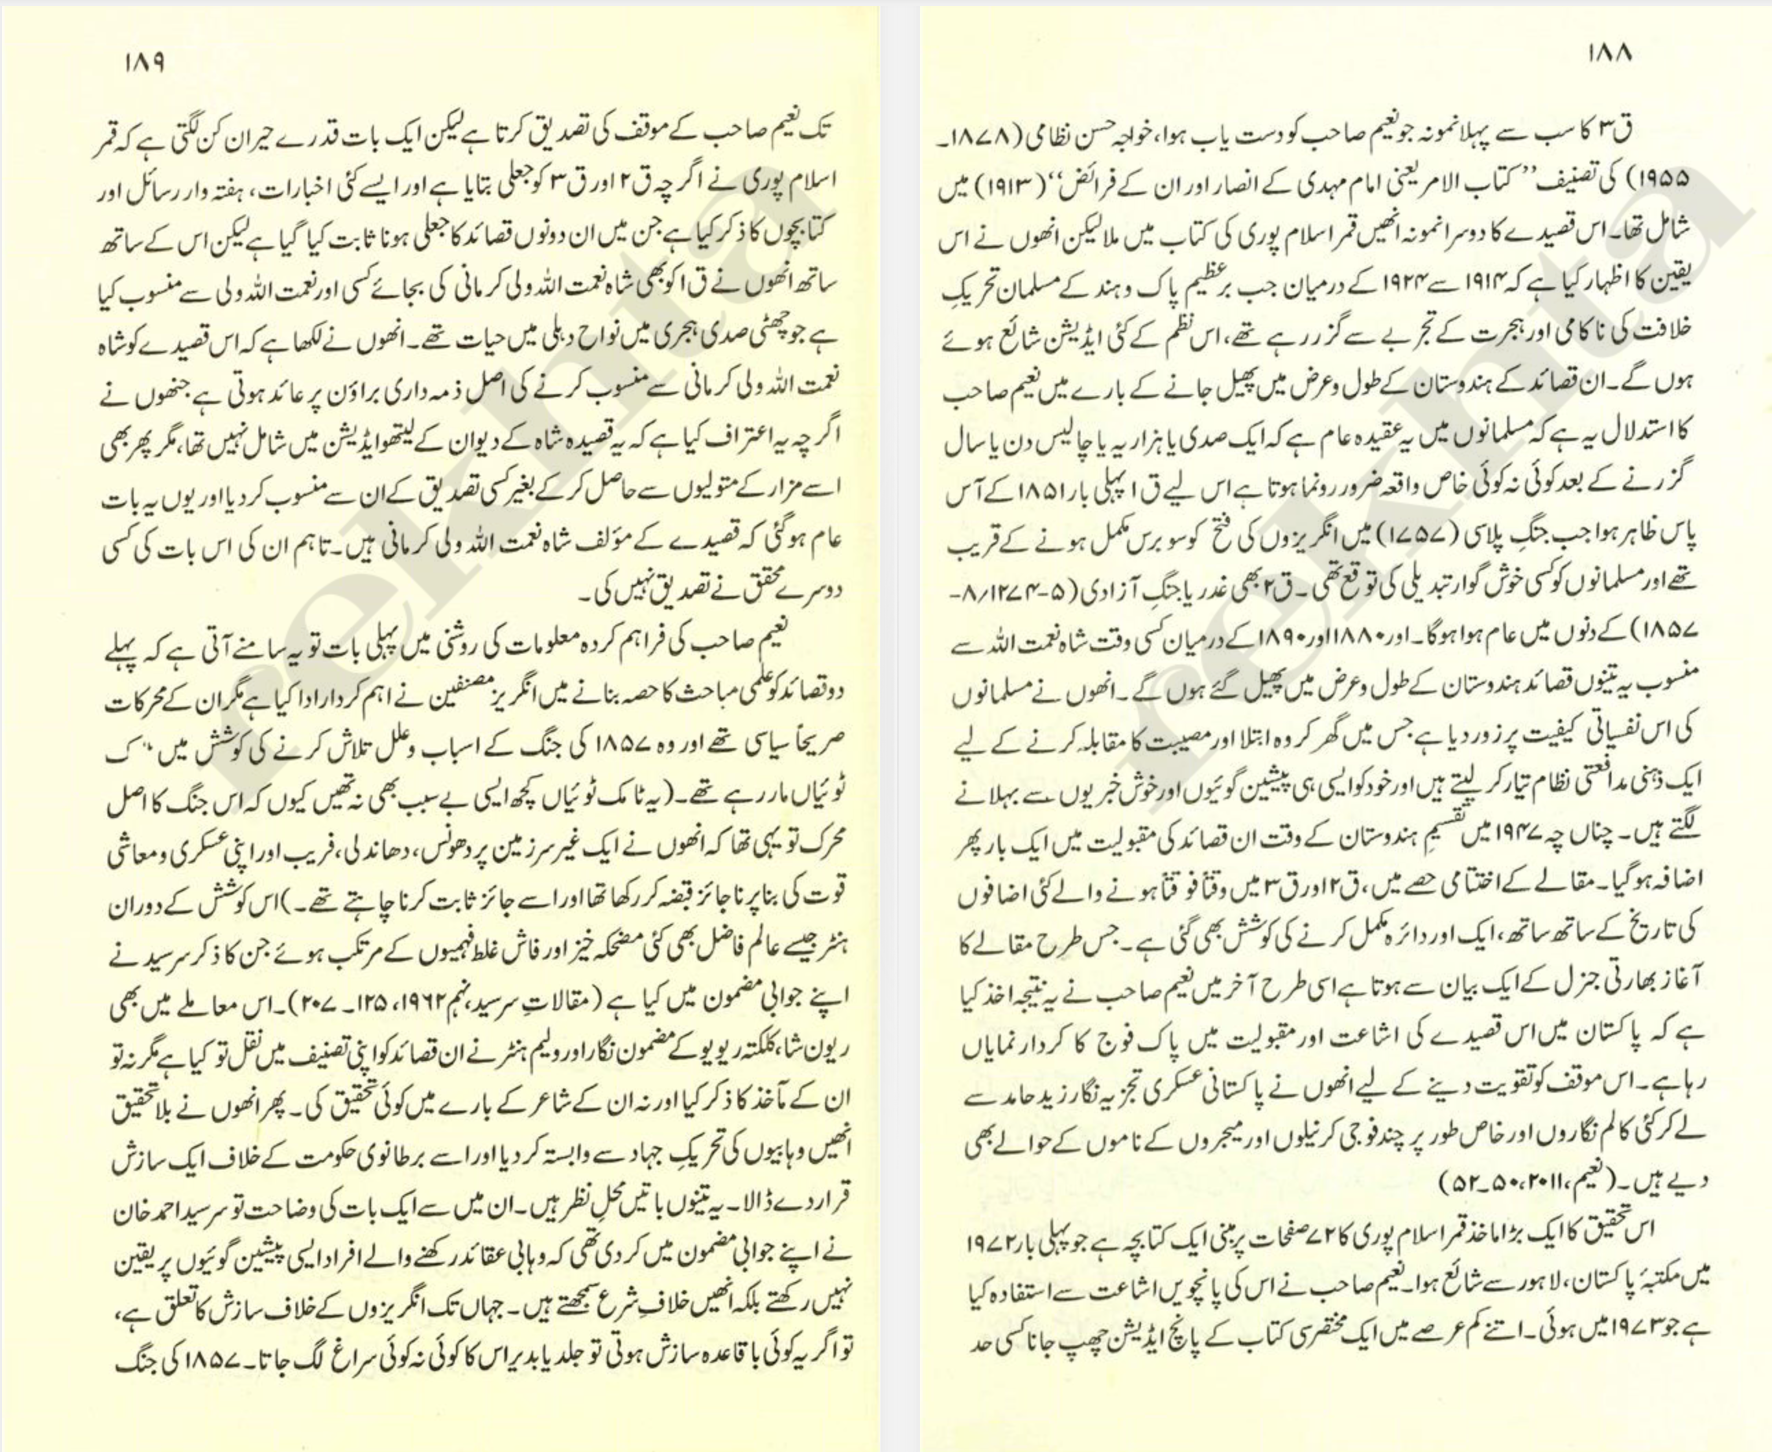 ۱۸۸
ق۳ کا سب سے پہلا نمونہ جو نعیم صاحب کو دست یاب ہوا، خواجہ حسن نظامی (۱۸۷۸۔
۱۹۵۵) کی تصنیف ’’کتاب الامر یعنی امام مہدی کے انصار اور ان کے فرائض‘‘ (۱۹۱۳) میں
شامل تھا۔ اس قصیدے کا دوسرا نمونہ انھیں قمر اسلام پوری کی کتاب میں ملا لیکن انھوں نے اس
یقین کا اظہار کیا ہے کہ ۱۹۱۴ سے ۱۹۲۴ کے درمیان جب برعظیم پاک و ہند کے مسلمان تحریکِ
خلافت کی ناکامی اور ہجرت کے تجربے سے گزر رہے تھے، اس نظم کے کئی ایڈیشن شائع ہوئے
ہوں گے۔ ان قصائد کے ہندوستان کے طول و عرض میں پھیل جانے کے بارے میں نعیم صاحب
کا استدلال یہ ہے کہ مسلمانوں میں یہ عقیدہ عام ہے کہ ایک صدی یا ہزاریہ یا چالیس دن یا سال
گزرنے کے بعد کوئی نہ کوئی خاص واقعہ ضرور رونما ہوتا ہے اس لیے ق۱ پہلی بار ۱۸۵۱ کے آس
پاس ظاہر ہوا جب جنگِ پلاسی (۱۷۵۷) میں انگریزوں کی فتح کو سو برس مکمل ہونے کے قریب
تھے اور مسلمانوں کو کسی خوش گوار تبدیلی کی توقع تھی۔ ق۲ بھی غدر یا جنگِ آزادی (۵-۱۲۷۴/۸-
۱۸۵۷) کے دنوں میں عام ہوا ہوگا۔ اور ۱۸۸۰ اور ۱۸۹۰ کے درمیان کسی وقت شاہ نعمت اللہ سے
منسوب یہ تینوں قصائد ہندوستان کے طول و عرض میں پھیل گئے ہوں گے۔ انھوں نے مسلمانوں
کی اس نفسیاتی کیفیت پر زور دیا ہے جس میں گھر کر وہ ابتلا اور مصیبت کا مقابلہ کرنے کے لیے
ایک ذہنی مدافعتی نظام تیار کر لیتے ہیں اور خود کو ایسی ہی پیشین گوئیوں اور خوش خبریوں سے بہلانے
لگتے ہیں۔ چناں چہ ۱۹۴۷ میں تقسیمِ ہندوستان کے وقت ان قصائد کی مقبولیت میں ایک بار پھر
اضافہ ہوگیا۔ مقالے کے اختتامی حصے میں، ق۲ اور ق۳ میں وقتاً فوقتاً ہونے والے کئی اضافوں
کی تاریخ کے ساتھ ساتھ، ایک اور دائرہ مکمل کرنے کی کوشش بھی کی گئی ہے۔ جس طرح مقالے کا
آغاز بھارتی جنرل کے ایک بیان سے ہوتا ہے اسی طرح آخر میں نعیم صاحب نے یہ نتیجہ اخذ کیا
ہے کہ پاکستان میں اس قصیدے کی اشاعت اور مقبولیت میں پاک فوج کا کردار نمایاں
رہا ہے۔ اس موقف کو تقویت دینے کے لیے انھوں نے پاکستانی عسکری تجزیہ نگار زید حامد سے
لے کر کئی کالم نگاروں اور خاص طور پر چند فوجی کرنیلوں اور میجروں کے ناموں کے حوالے بھی
دیے ہیں۔ (نعیم، ۲۰۱۱، ۵۰۔۵۲)
اس تحقیق کا ایک بڑا ماخذ قمر اسلام پوری کا ۷۲ صفحات پر مبنی ایک کتابچہ ہے جو پہلی بار ۱۹۷۲
میں مکتبۂ پاکستان، لاہور سے شائع ہوا۔ نعیم صاحب نے اس کی پانچویں اشاعت سے استفادہ کیا
ہے جو ۱۹۷۳ میں ہوئی۔ اتنے کم عرصے میں ایک مختصر سی کتاب کے پانچ ایڈیشن چھپ جانا کسی حد
۱۸۹
تک نعیم صاحب کے موقف کی تصدیق کرتا ہے لیکن ایک بات قدرے حیران کن لگتی ہے کہ قمر
اسلام پوری نے اگرچہ ق۲ اور ق۳ کو جعلی بتایا ہے اور ایسے کئی اخبارات، ہفتہ وار رسائل اور
کتابچوں کا ذکر کیا ہے جن میں ان دونوں قصائد کا جعلی ہونا ثابت کیا گیا ہے لیکن اس کے ساتھ
ساتھ انھوں نے ق۱ کو بھی شاہ نعمت اللہ ولی کرمانی کی بجائے کسی اور نعمت اللہ ولی سے منسوب کیا
ہے جو چھٹی صدی ہجری میں نواحِ دہلی میں حیات تھے۔ انھوں نے لکھا ہے کہ اس قصیدے کو شاہ
نعمت اللہ ولی کرمانی سے منسوب کرنے کی اصل ذمہ داری براؤن پر عائد ہوتی ہے جنھوں نے
اگرچہ یہ اعتراف کیا ہے کہ یہ قصیدہ شاہ کے دیوان کے لیتھو ایڈیشن میں شامل نہیں تھا، مگر پھر بھی
اسے مزار کے متولیوں سے حاصل کر کے بغیر کسی تصدیق کے ان سے منسوب کر دیا اور یوں یہ بات
عام ہوگئی کہ قصیدے کے مؤلف شاہ نعمت اللہ ولی کرمانی ہیں۔ تاہم ان کی اس بات کی کسی
دوسرے محقق نے تصدیق نہیں کی۔
نعیم صاحب کی فراہم کردہ معلومات کی روشنی میں پہلی بات تو یہ سامنے آتی ہے کہ پہلے
دو قصائد کو علمی مباحث کا حصہ بنانے میں انگریز مصنفین نے اہم کردار ادا کیا ہے مگر ان کے محرکات
صریحاً سیاسی تھے اور وہ ۱۸۵۷ کی جنگ کے اسباب و علل تلاش کرنے کی کوشش میں ک
ٹوئیاں مار رہے تھے۔ (یہ ٹامک ٹوئیاں کچھ ایسی بے سبب بھی نہ تھیں کیوں کہ اس جنگ کا اصل
محرک تو یہی تھا کہ انھوں نے ایک غیر سرزمین پر دھونس، دھاندلی، فریب اور اپنی عسکری و معاشی
قوت کی بنا پر ناجائز قبضہ کر رکھا تھا اور اسے جائز ثابت کرنا چاہتے تھے۔) اس کوشش کے دوران
ہنٹر جیسے عالم فاضل بھی کئی مضحکہ خیز اور فاش غلط فہمیوں کے مرتکب ہوئے جن کا ذکر سرسید نے
اپنے جوابی مضمون میں کیا ہے (مقالاتِ سرسید، نہم ۱۹۶۲، ۱۲۵۔۲۰۷)۔ اس معاملے میں بھی
ریون شا، کلکتہ ریویو کے مضمون نگار اور ولیم ہنٹر نے ان قصائد کو اپنی تصنیف میں نقل تو کیا ہے مگر نہ تو
ان کے مآخذ کا ذکر کیا اور نہ ان کے شاعر کے بارے میں کوئی تحقیق کی۔ پھر انھوں نے بلا تحقیق
انھیں وہابیوں کی تحریکِ جہاد سے وابستہ کر دیا اور اسے برطانوی حکومت کے خلاف ایک سازش
قرار دے ڈالا۔ یہ تینوں باتیں محلِ نظر ہیں۔ ان میں سے ایک بات کی وضاحت تو سرسید احمد خان
نے اپنے جوابی مضمون میں کر دی تھی کہ وہابی عقائد رکھنے والے افراد ایسی پیشین گوئیوں پر یقین
نہیں رکھتے بلکہ انھیں خلافِ شرع سمجھتے ہیں۔ جہاں تک انگریزوں کے خلاف سازش کا تعلق ہے،
تو اگر یہ کوئی باقاعدہ سازش ہوتی تو جلد یا بدیر اس کا کوئی نہ کوئی سراغ لگ جاتا۔ ۱۸۵۷ کی جنگ
rekhta
rekhta